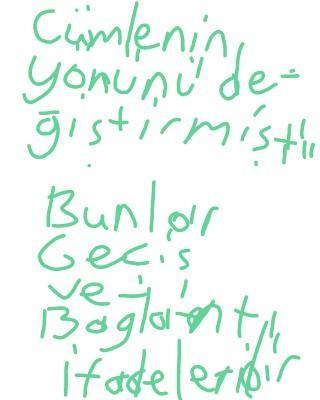 Cümlenin
yönünü de-
ğiştirmişti"
Bunlar
Geçiş
ve
Bağlantı"
ifadeleridir